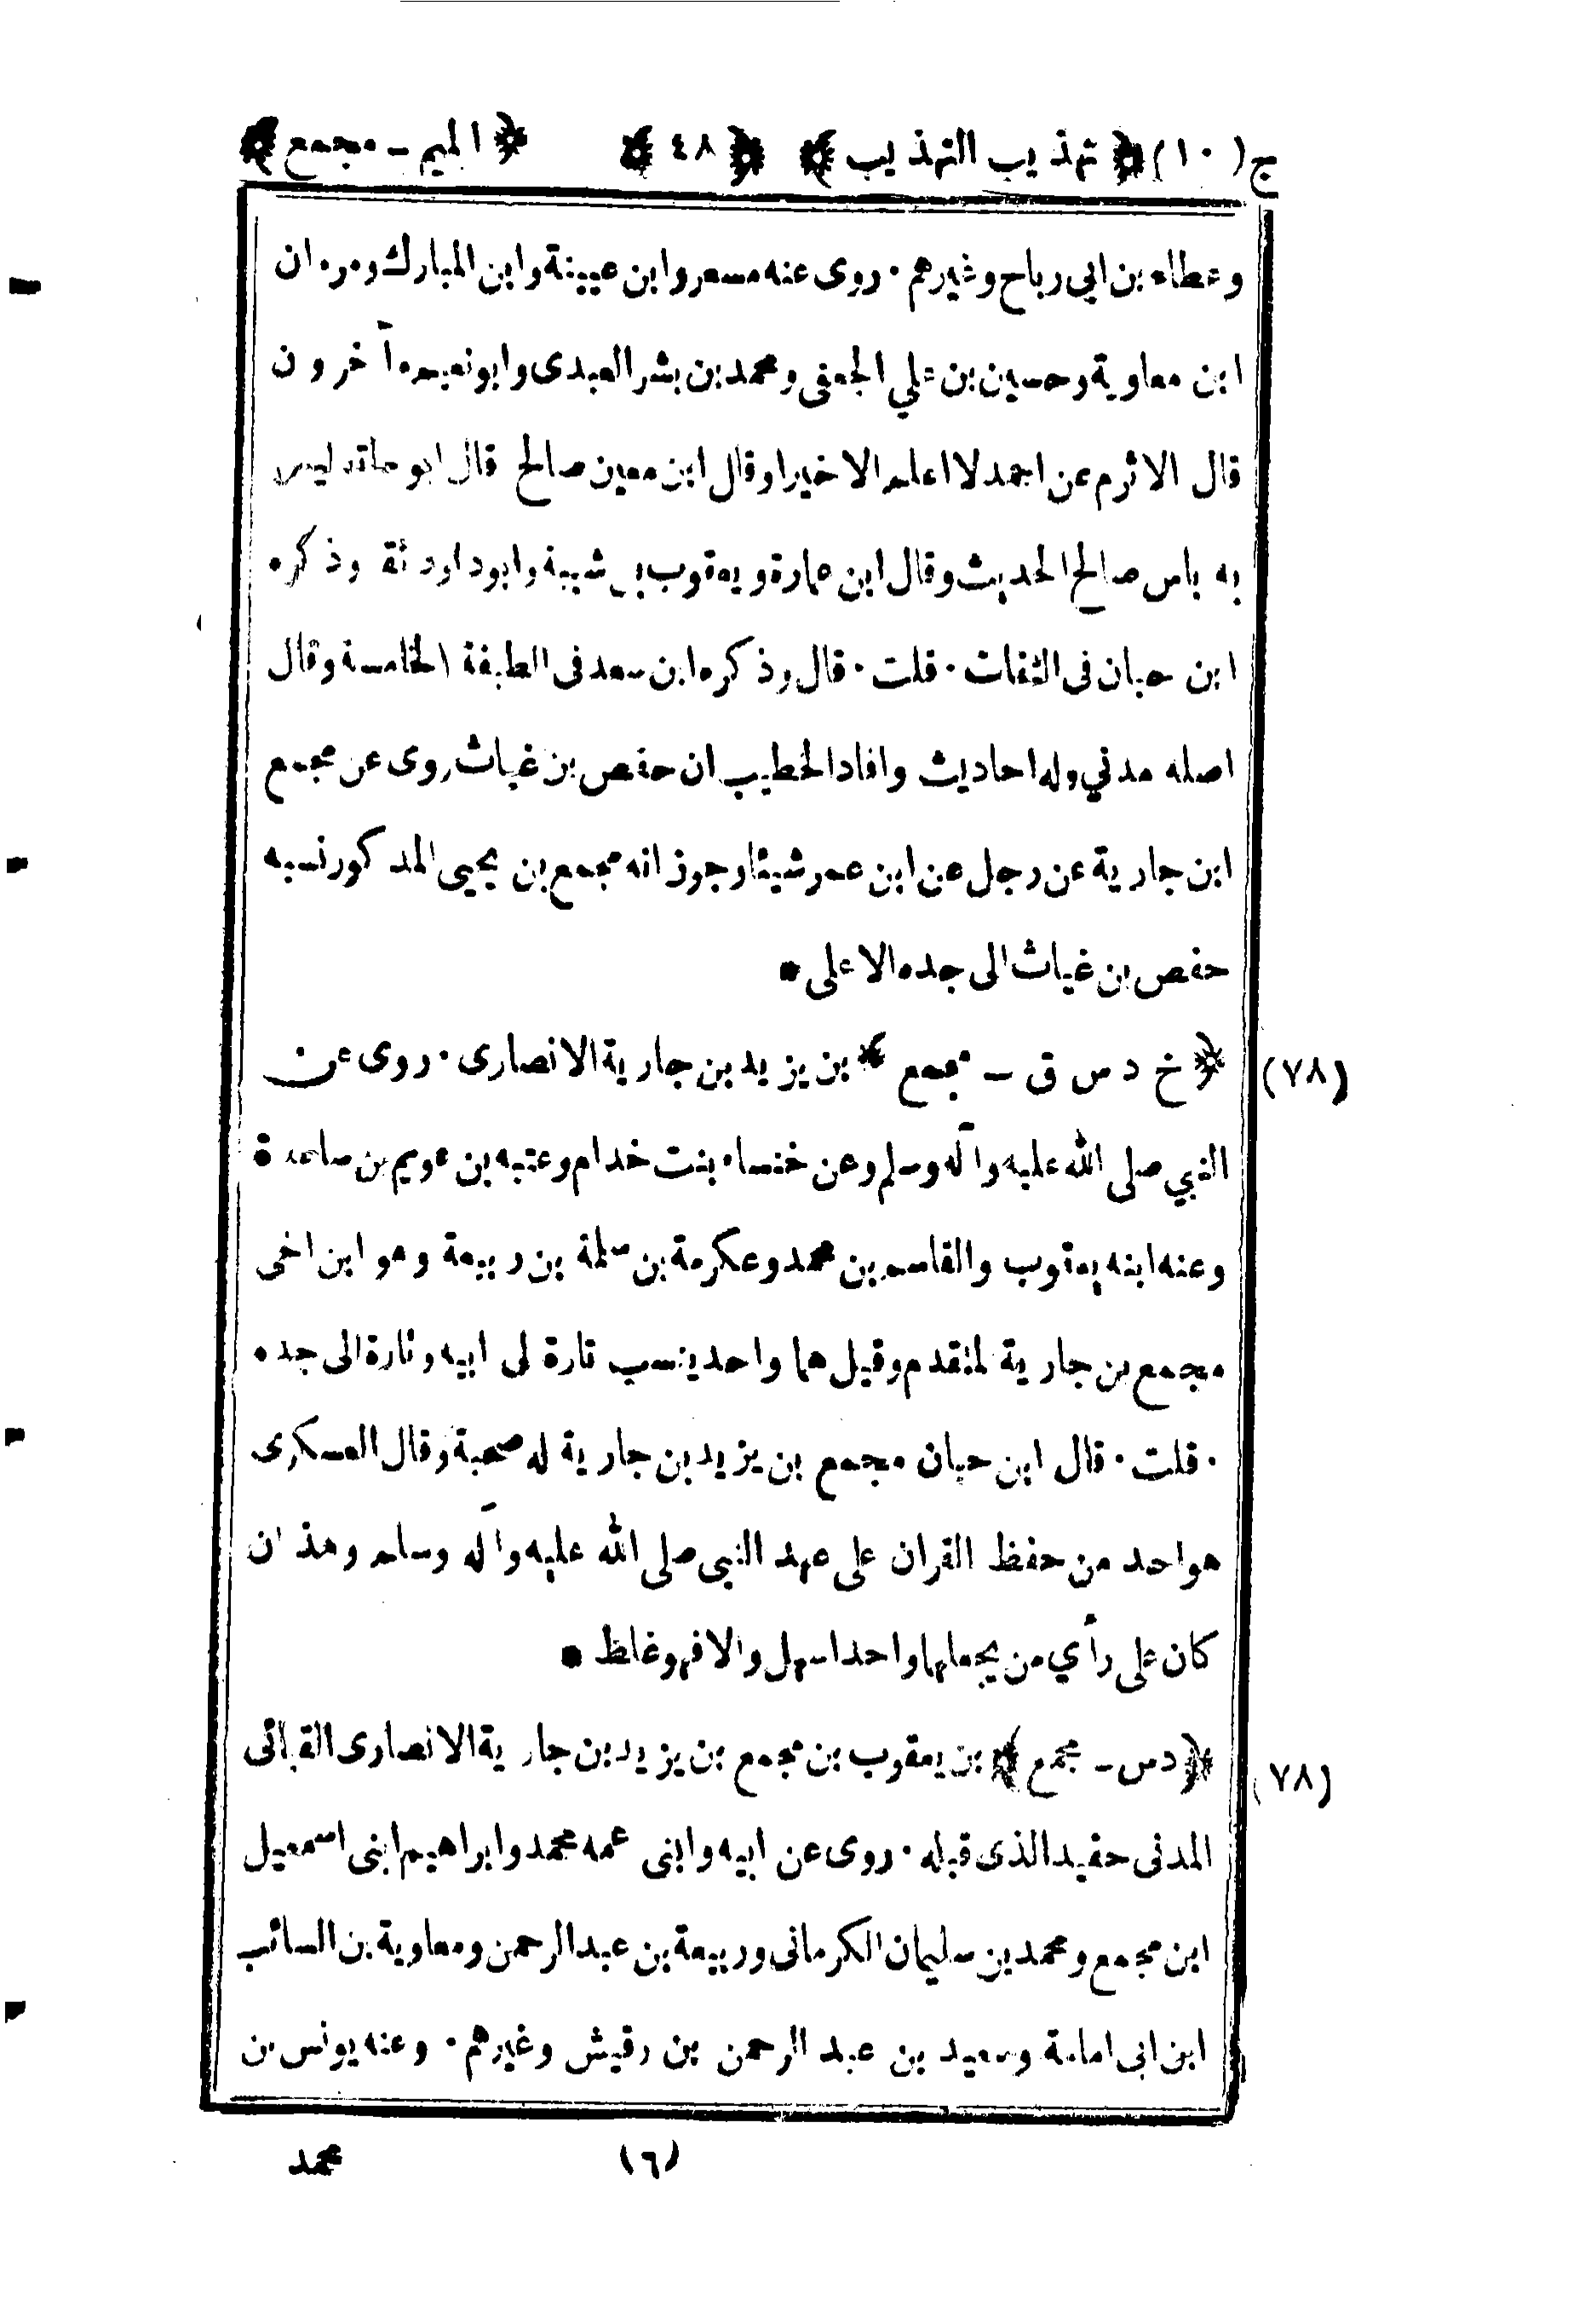 ج (١٠) ﴿ تهذيب التهذيب ﴾ ﴿ ٤٨ ﴾ ﴿ الميم ـ مجمع ﴾
وعطاء بن ابي رباح وغيرهم ٠ روى عنه مسعر وابن عيينة وابن المبارك ومروان
ابن معاوية وحسين بن علي الجعفى ومحمد بن بشر العبدى وابو نعيم وآخرون
قال الاثرم عن احمد لا اعلم الا خيرا وقال ابن معين صالح قال ابو حاتم ليس
به باس صالح الحديث وقال ابن عمارة ويعقوب بن شيبة وابو داود ثقة وذكره
ابن حبان فى الثقات ٠ قلت ٠ قال وذكره ابن سعد فى الطبقة الخامسة وقال
اصله مدني وله احاديث وافاد الخطيب ان حفص بن غياث روى عن مجمع
ابن جارية عن رجل عن ابن عمر شيئا وجوز انه مجمع بن يحيى المذكور نسبه
حفص بن غياث الى جده الاعلى *
(٧٨) ﴿ خ د س ق ـ مجمع ﴾ بن يزيد بن جارية الانصارى ٠ روى عن
النبي صلى الله عليه وآله وسلم وعن خنساء بنت خدام وعتبه بن عويم بن ساعدة
وعنه ابنه يعقوب والقاسم بن محمد وعكرمة بن سلمة بن ربيعة وهو ابن اخى
مجمع بن جارية لمتقدم وقيل هما واحد ينسب تارة لى ابيه وتارة الى جده
٠ قلت ٠ قال ابن حبان مجمع بن يزيد بن جارية له صحبة وقال العسكرى
هواحد من حفظ القران على عهد النبى صلى الله عليه وآله وسلم وهذا ان
كان على رأي من يجعلهما واحدا سهل والا فهو غلط *
(٧٨) ﴿ دس ـ مجمع ﴾ بن يعقوب بن مجمع بن يزيد بن جارية الانصارى القبائى
المدنى حفيد الذى قبله ٠ روى عن ابيه وابنى عمه محمد وابراهيم ابنى اسمعيل
ابن مجمع ومحمد بن سليمان الكرمانى وربيعة بن عبد الرحمن ومعاوية بن السائب
ابن ابى امامة وسعيد بن عبد الرحمن بن رقيش وغيرهم ٠ وعنه يونس بن
(٦) محمد